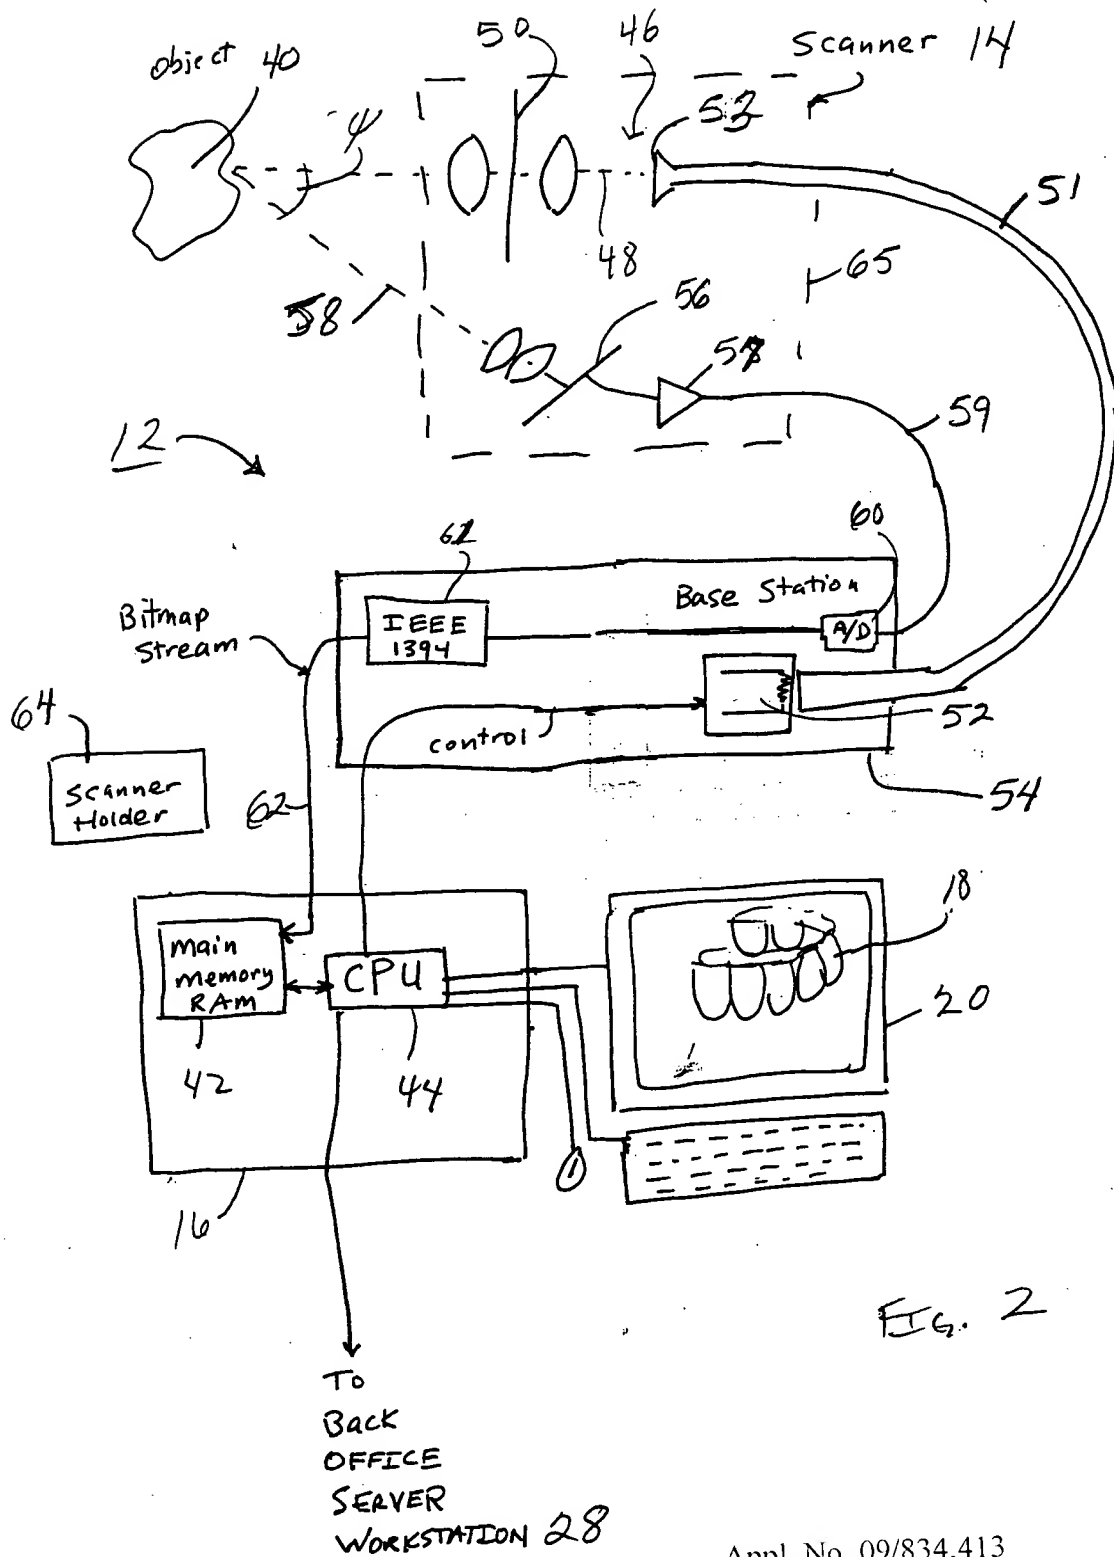 50
46
Scanner 14
Object 40
53
51
48
65
58
56
57
59
12
60
61
Base Station
Bitmap
Stream
IEEE
1394
A/D
64
52
control
Scanner
Holder
62
54
18
Main
Memory
RAM
CPU
20
42
44
16
FIG. 2
To
Back
OFFICE
SERVER
WORKSTATION 28
Appl. No. 09/834,413